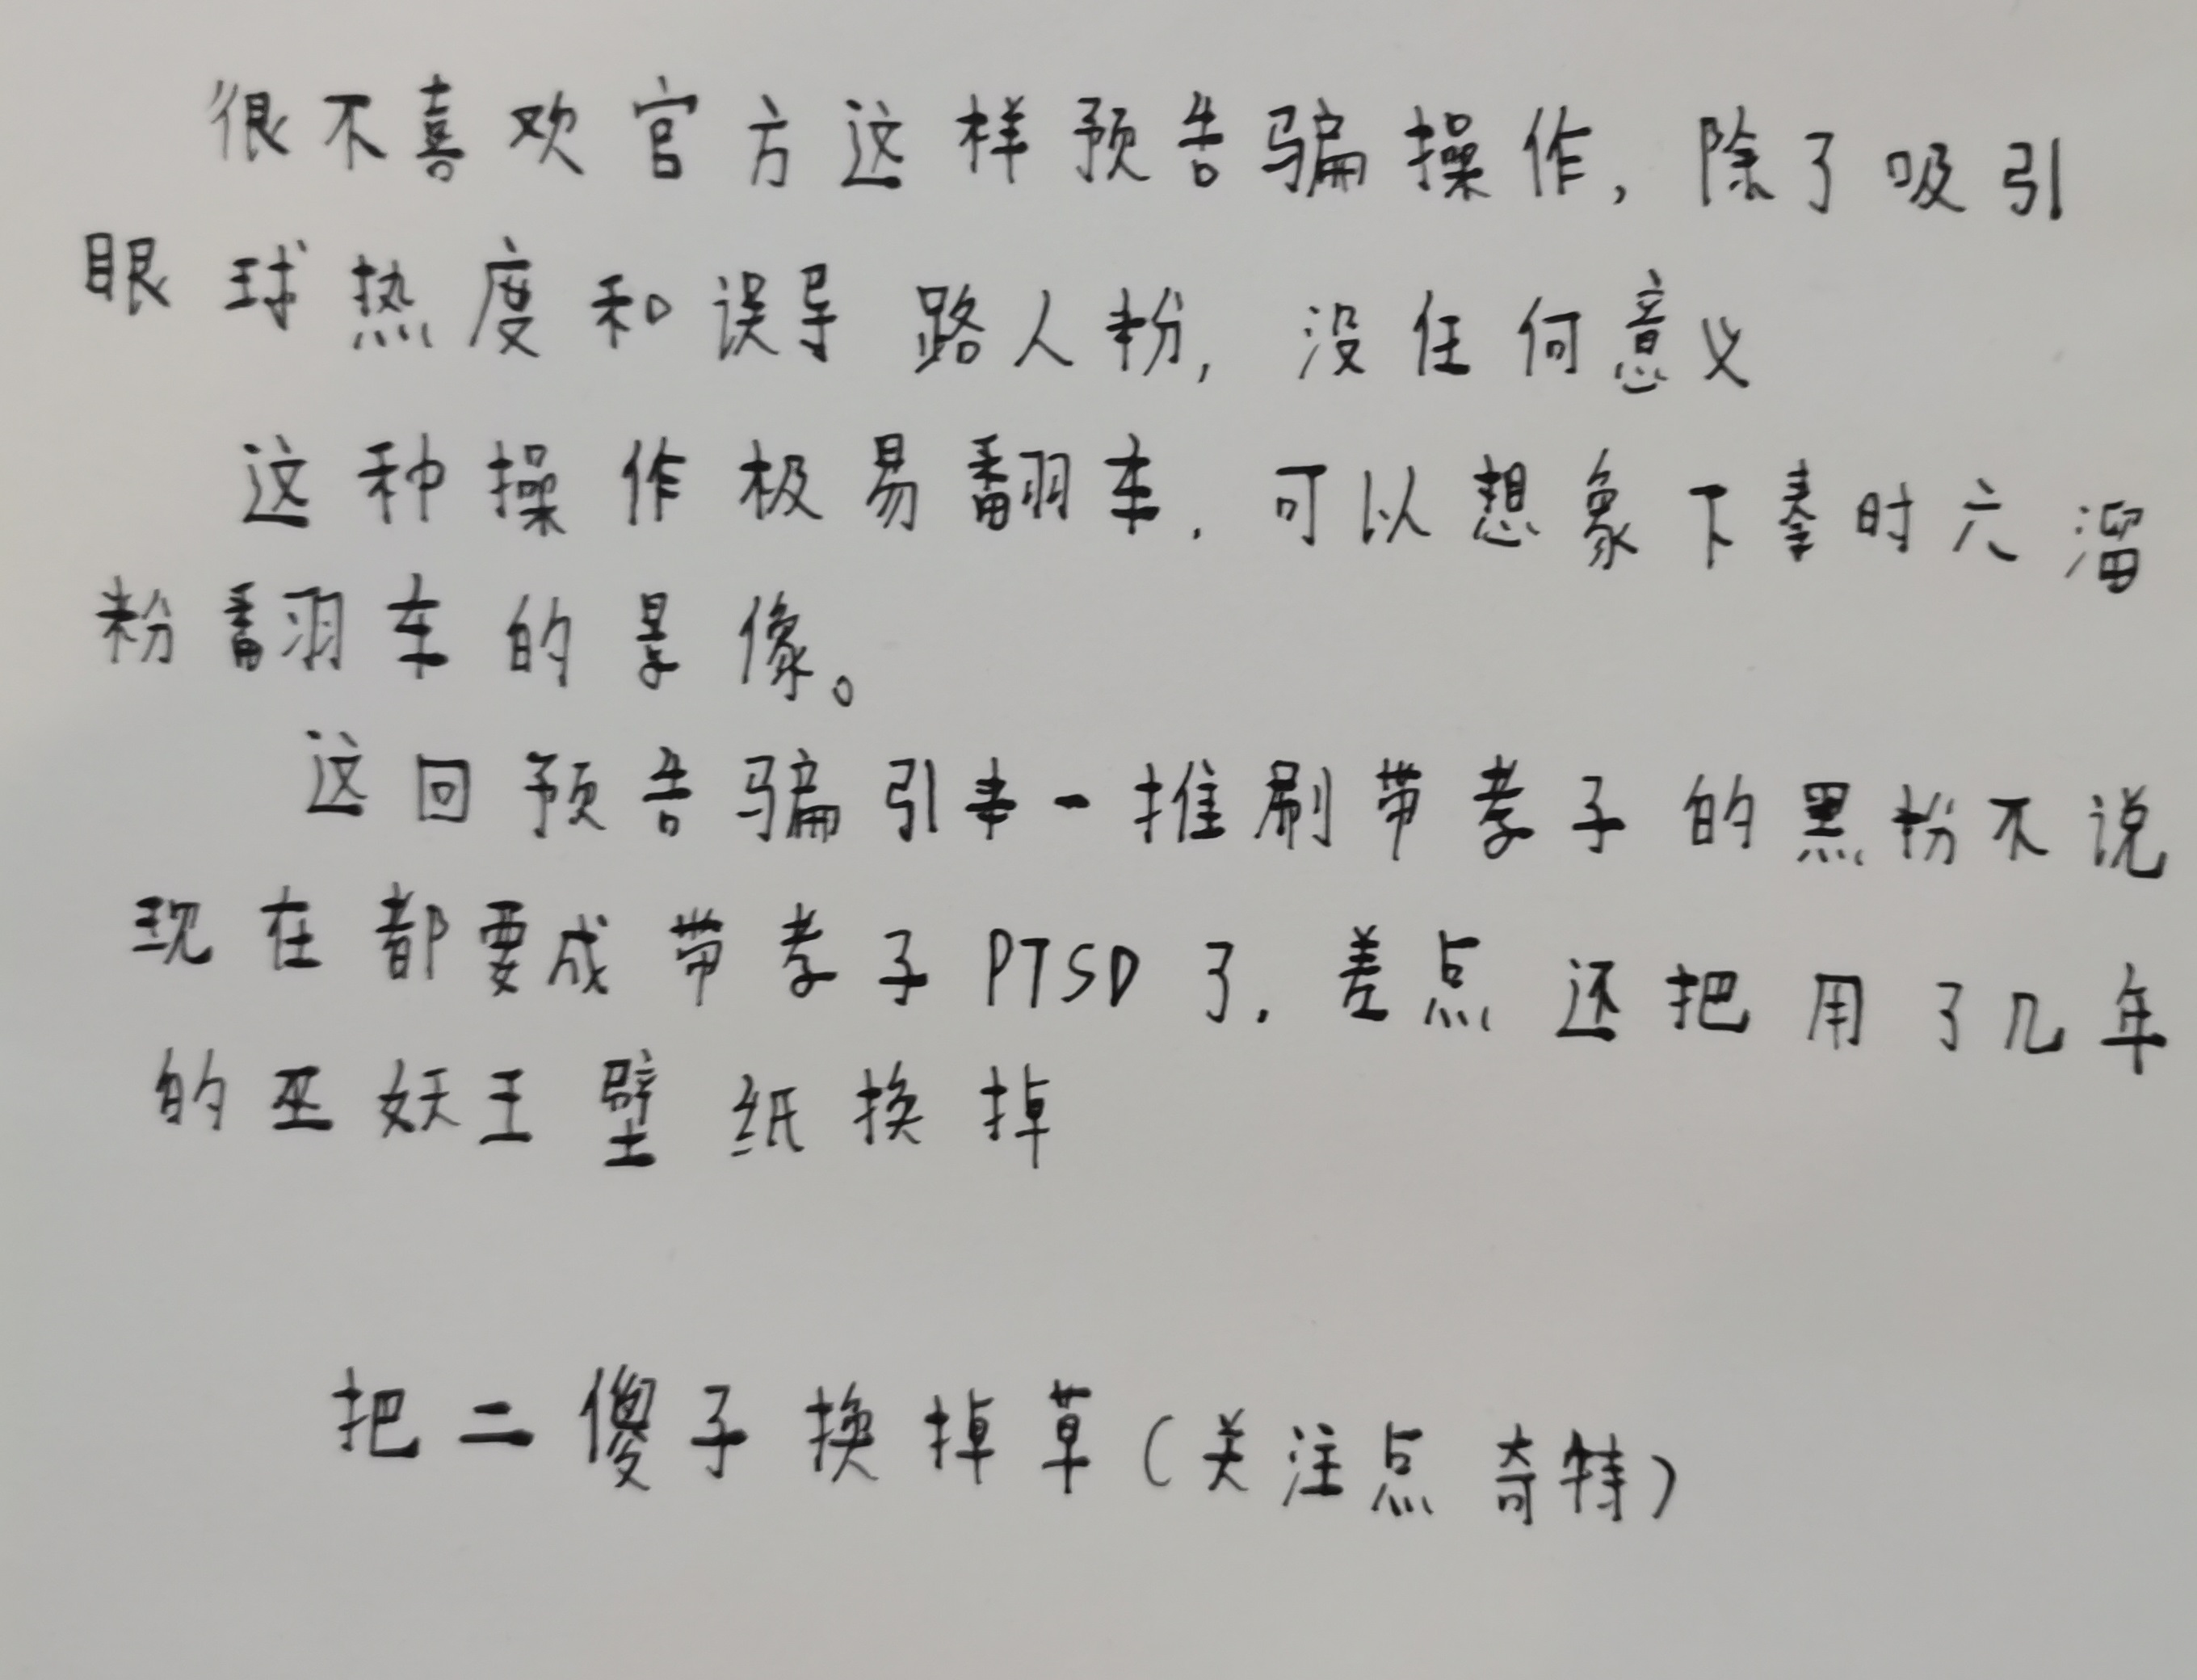 很不喜欢官方这样预告骗操作,除了吸引
眼球热度和误导路人粉,没任何意义
这种操作极易翻车,可以想象下秦时六溜
粉翻车的景像。
这回预告骗引来一推刷带孝子的黑粉不说
现在都要成带孝子PTSD了,差点还把用了几年
的巫妖王壁纸换掉
把二傻子换掉草(关注点奇特)